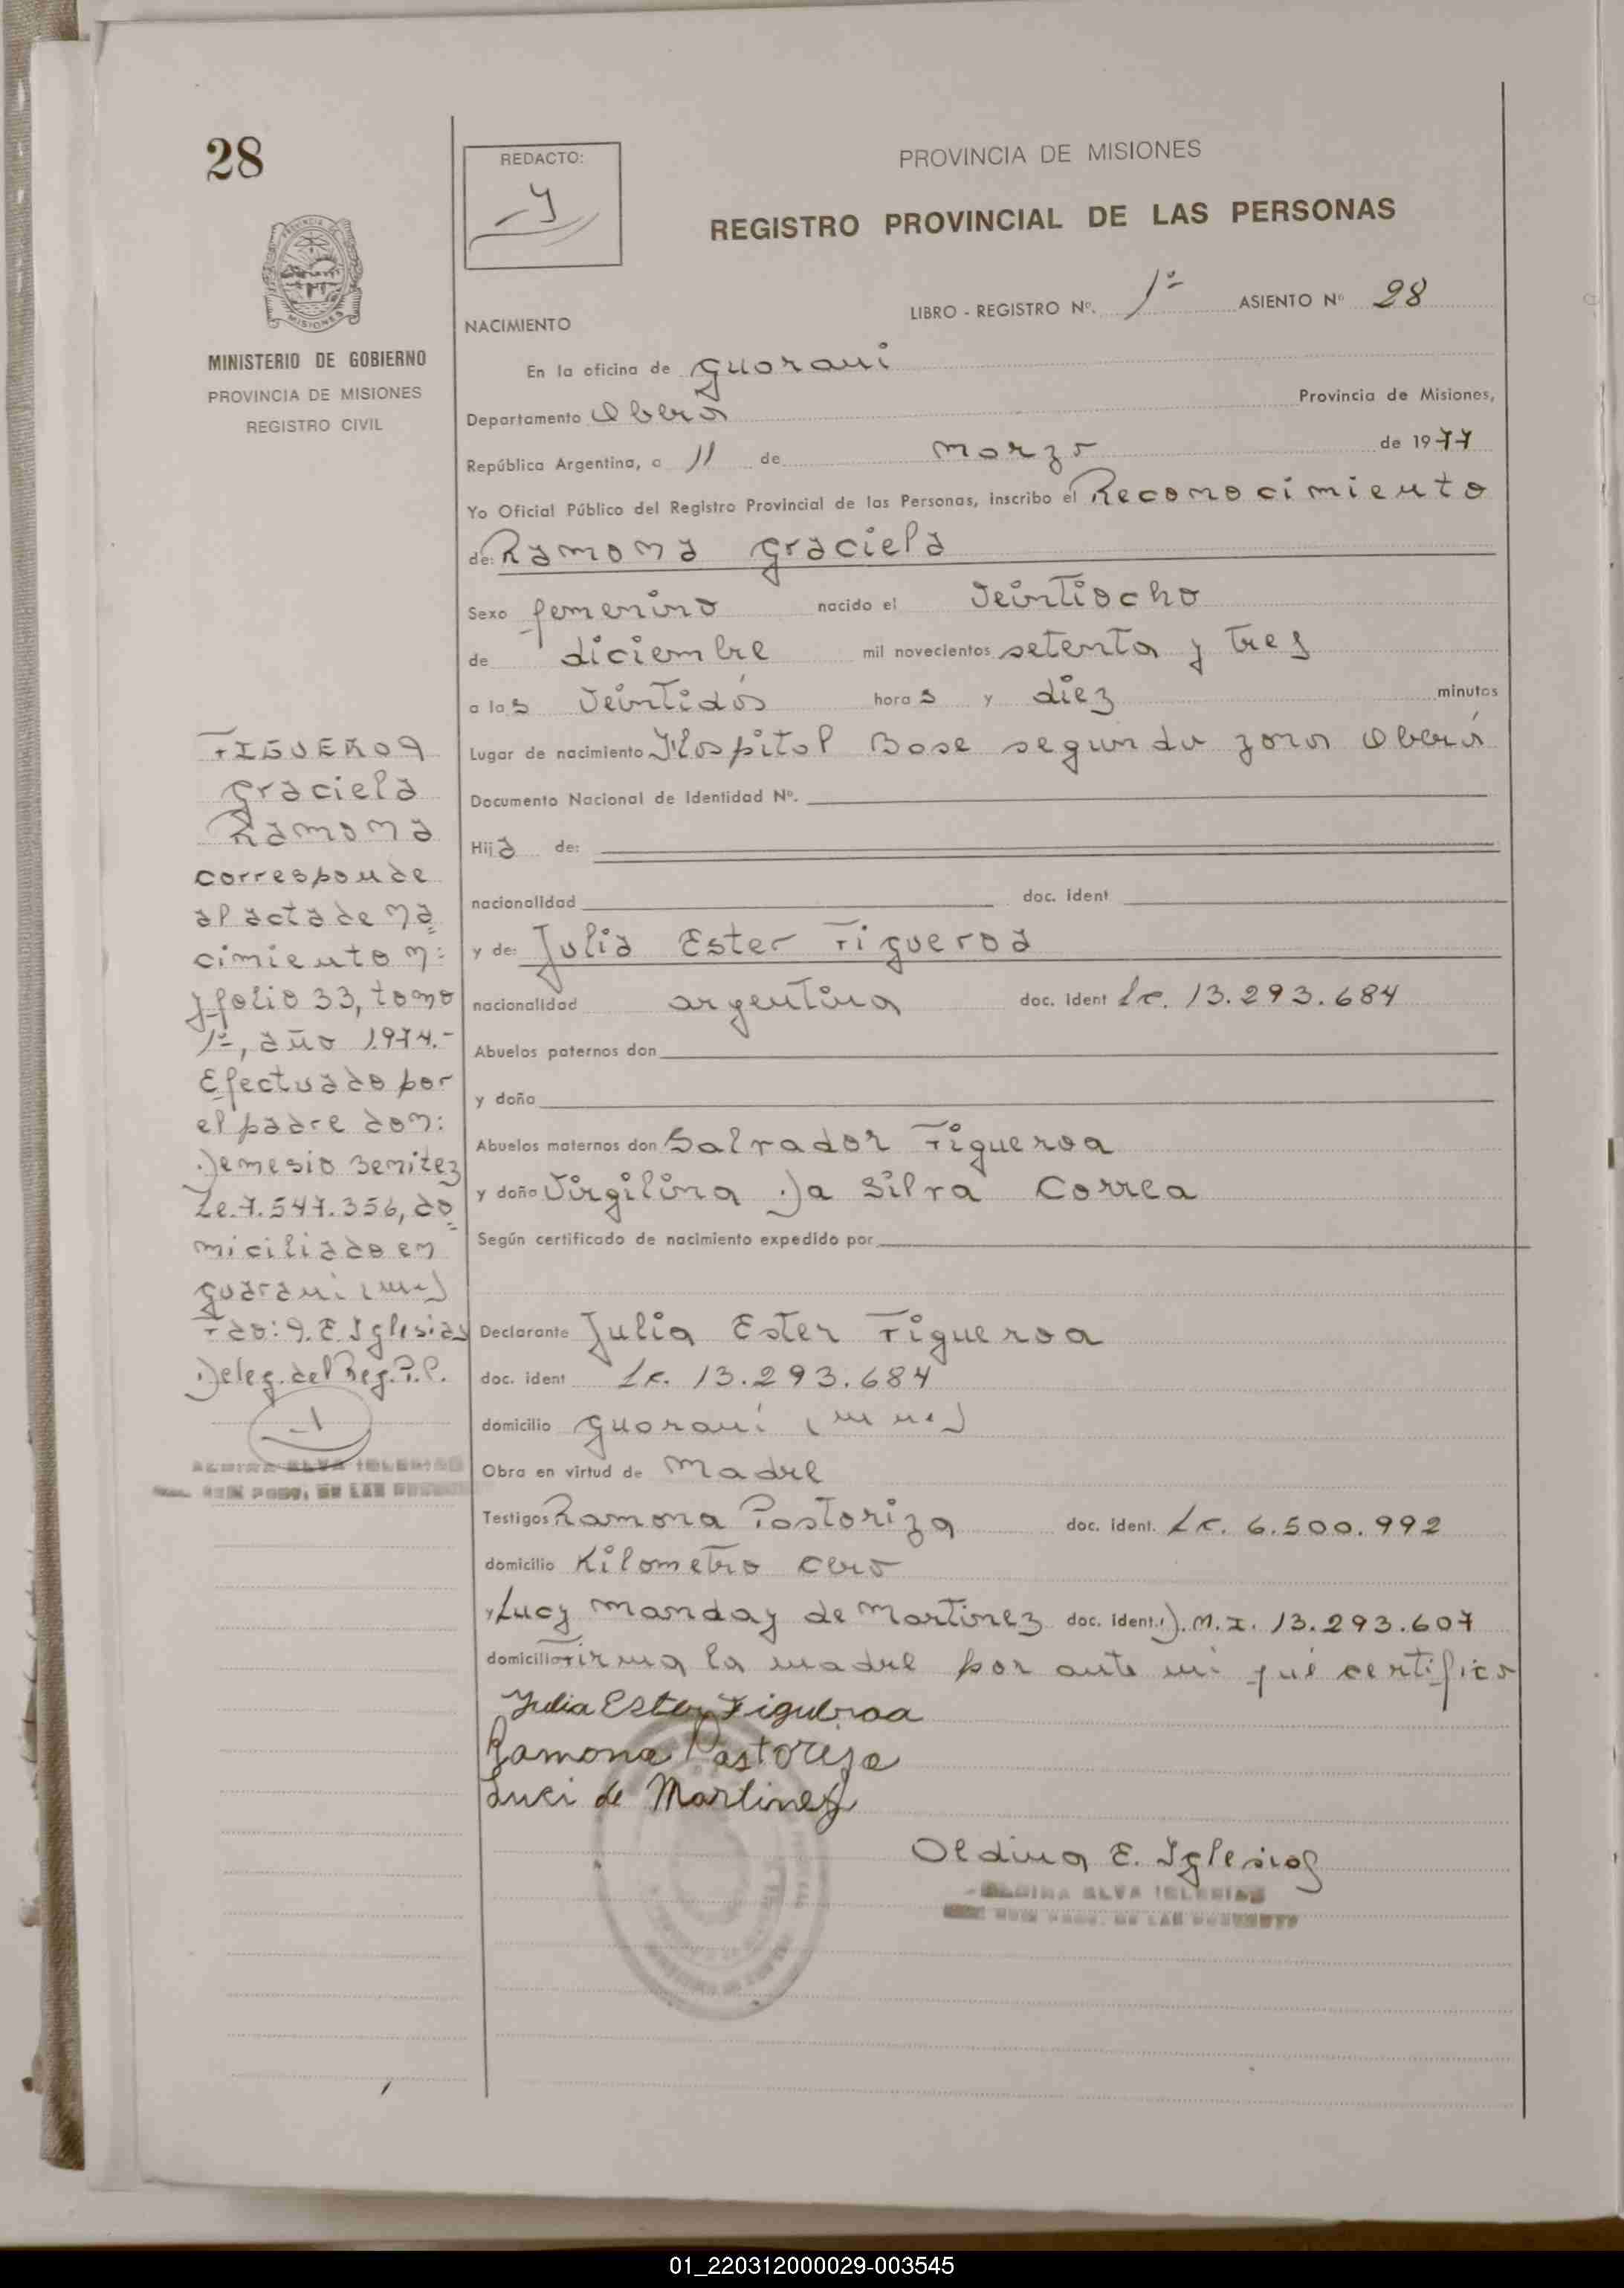 28
REDACTO:
PROVINCIA DE MISIONES
REGISTRO PROVINCIAL DE LAS PERSONAS
LIBRO - REGISTRO Nº. 1º ASIENTO Nº 28
MISIONES
MINISTERIO DE GOBIERNO
PROVINCIA DE MISIONES
REGISTRO CIVIL
NACIMIENTO
En la oficina de Guarani
Departamento Oberá Provincia de Misiones,
República Argentina, a 11 de Marzo de 1977
Yo Oficial Público del Registro Provincial de las Personas, inscribo el Reconocimiento
de: Ramona Graciela
Sexo femenino nacido el Veintiocho
de diciembre mil novecientos setenta y tres
a las Veintidós horas y diez minutos
Lugar de nacimiento Hospital Base segunda zona Oberá
Documento Nacional de Identidad Nº.
Hija de:
nacionalidad doc. ident
y de: Julia Ester Figueroa
nacionalidad argentina doc. ident Lc. 13.293.684
Abuelos paternos don
y doña
Abuelos maternos don Salvador Figueroa
y doña Virgilina Da Silva Correa
Según certificado de nacimiento expedido por
Declarante Julia Ester Figueroa
doc. ident Lc. 13.293.684
domicilio Guaraní (mnes)
Obra en virtud de Madre
Testigos Ramona Pastoriza doc. ident. Lc. 6.500.992
domicilio Kilometro cero
y Lucy Manday de Martinez doc. ident. D.M.I. 13.293.607
domicilio Firma la madre por ante mi que certifico
Julia Ester Figueroa
Ramona Pastorisa
Luci de Martinez
Oldina E. Iglesias
FIGUEROA
Graciela
Ramona
corresponde
al acta de na=
cimiento n:
y folio 33, tomo
1º, año 1974.-
Efectuado por
el padre don:
Demesio Benitez
Le. 7.547.356, do=
miciliado en
Guarani (mnes)
Fdo: O. E. Iglesias
Deleg. del Reg. P. P.
ELVA IGLESIAS
01_220312000029-003545